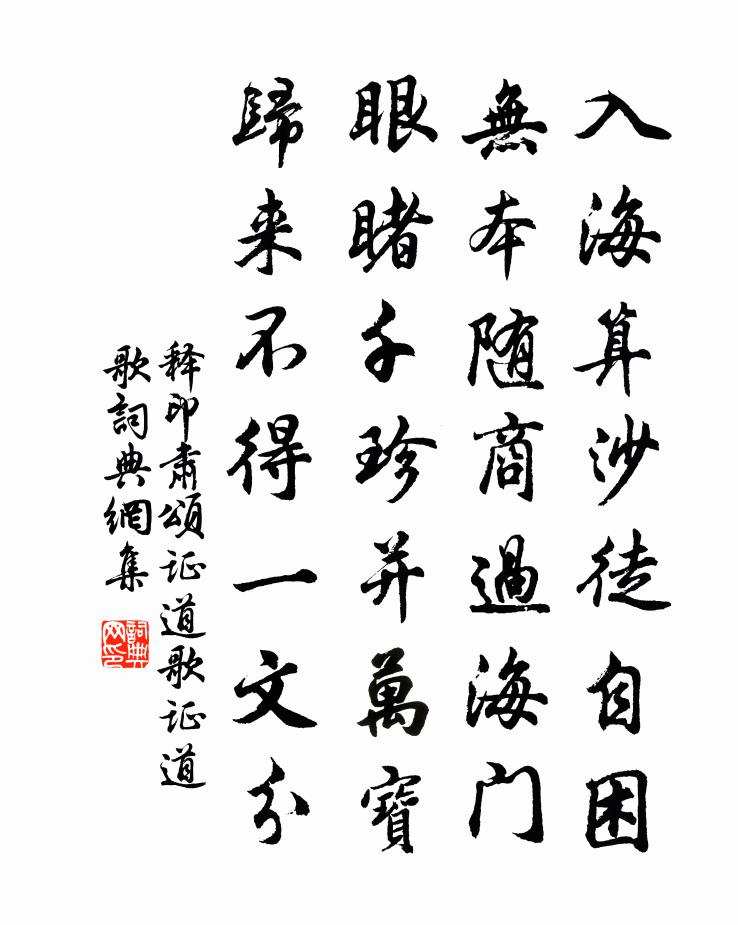 入海算沙徒自困
無本随商過海门
眼睹千珍并萬寶
歸来不得一文分
释印肃颂证道歌证道
歌詞典網集
詞典
网印